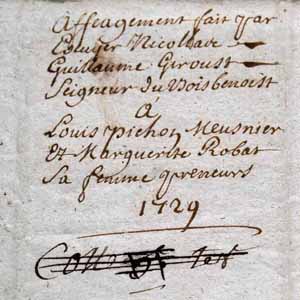 Affeagement fait par
Ecuyer Nicollas
Guillaume Giroust
Seigneur du Boisbenoist
à
Louis pichot Meusnier
Et Marguerite Robat
Sa femme preneurs
1729